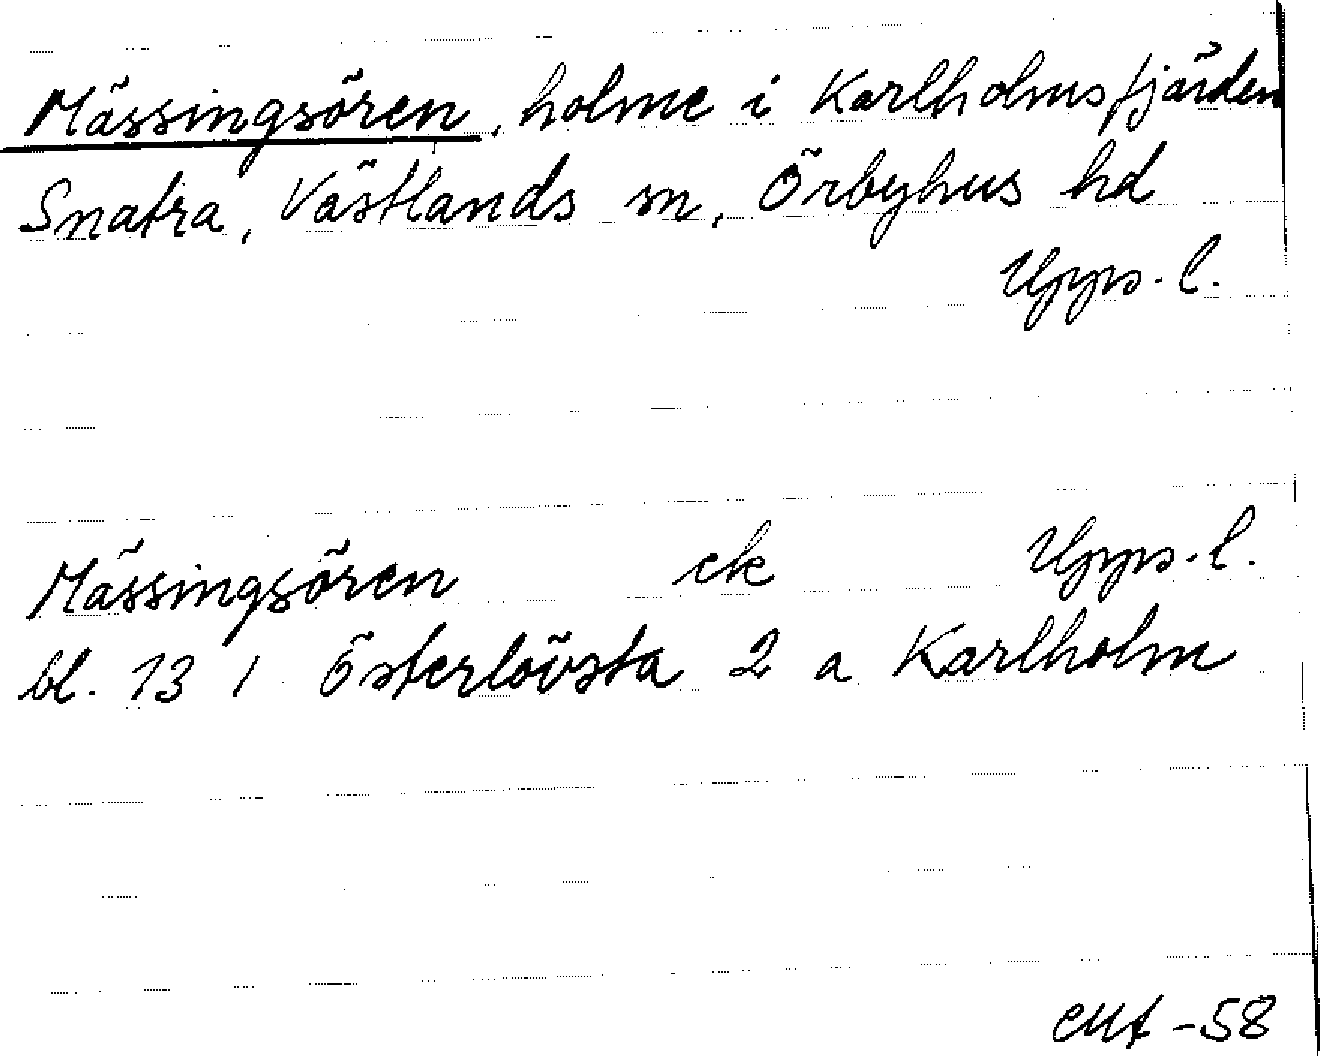 Mässingsören, holme i Karlholmsfjärden
Snatra, Västlands sn, Örbyhus hd
Upps. l.
Mässingsören ek Upps. l.
bl. 13 1 Österlövsta 2 a Karlholm
-58